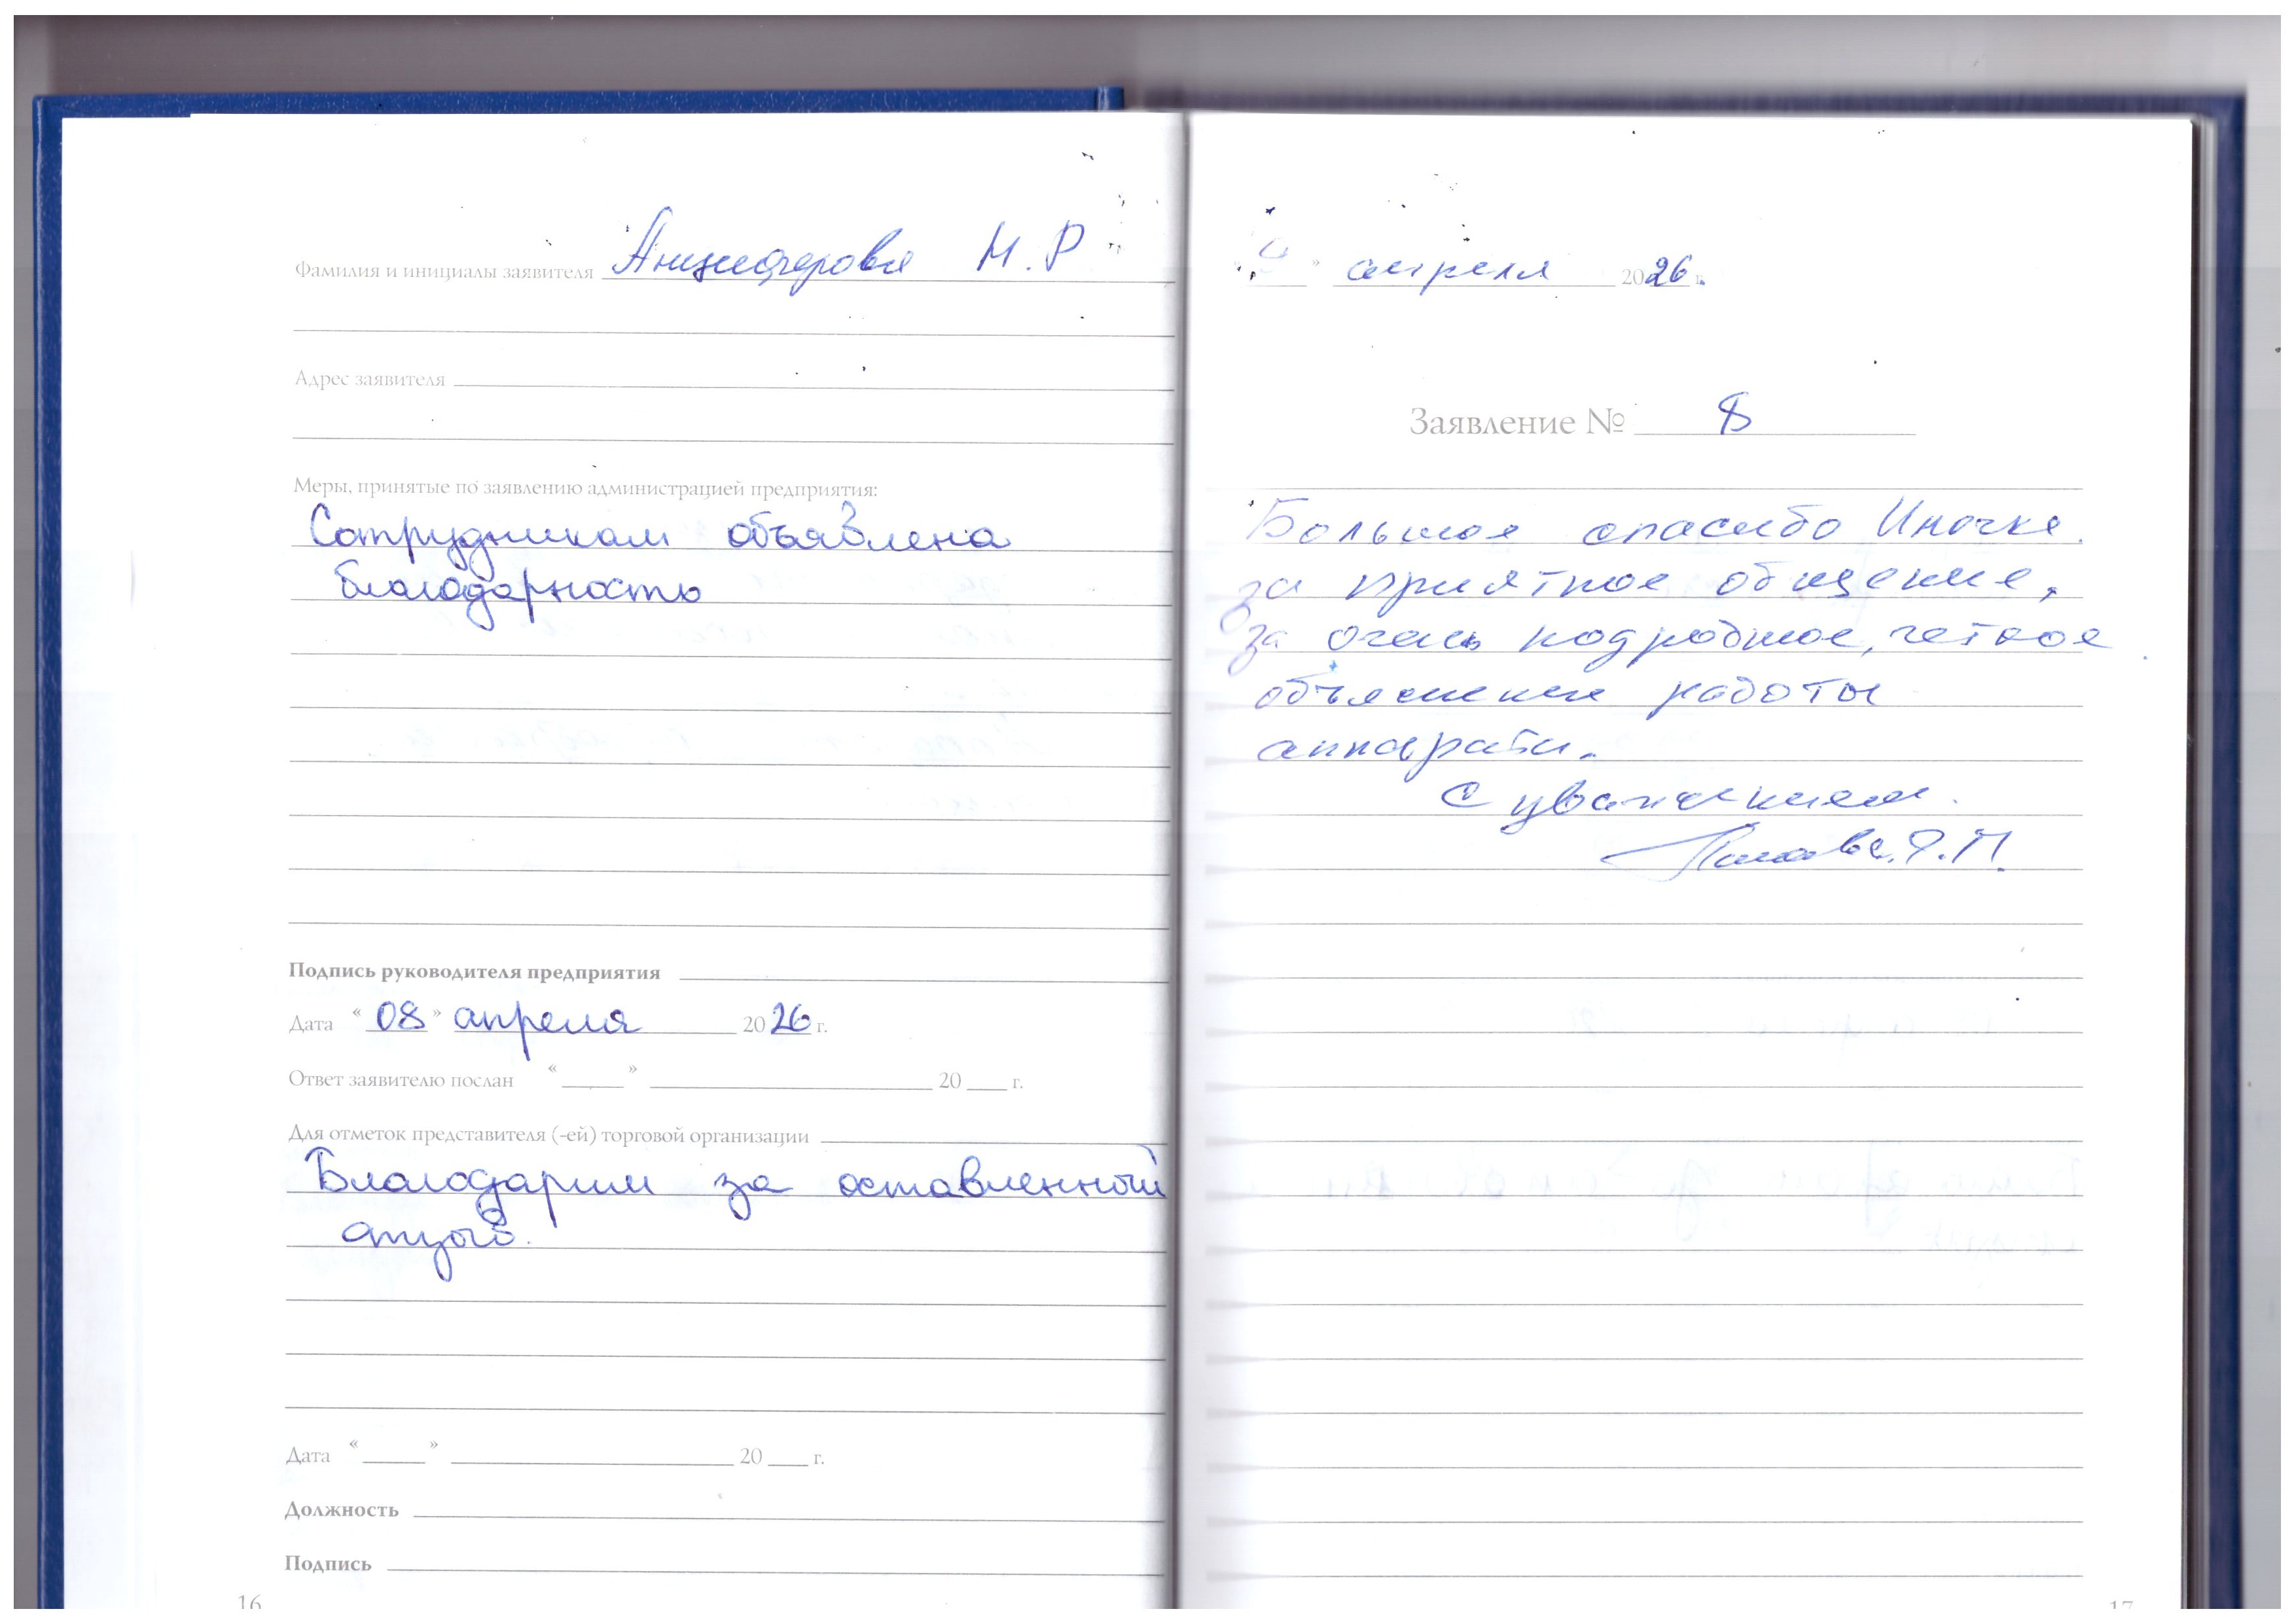 Фамилия и инициалы заявителя Анциферова М.Р
Адрес заявителя
Меры, принятые по заявлению администрацией предприятия:
Сотрудникам объявлена
благодарность
Подпись руководителя предприятия
Дата « 08 » апреля 2026 г.
Ответ заявителю послан « » 20 г.
Для отметок представителя (-ей) торговой организации
Благодарим за оставленный
отзыв.
Дата « » 20 г.
Должность
Подпись
16
» апреля 2026 г.
Заявление № 8
Большое спасибо Иночке
за приятное общение,
за очень подробное, четкое
объяснение работы
аппарата.
С уважением
17